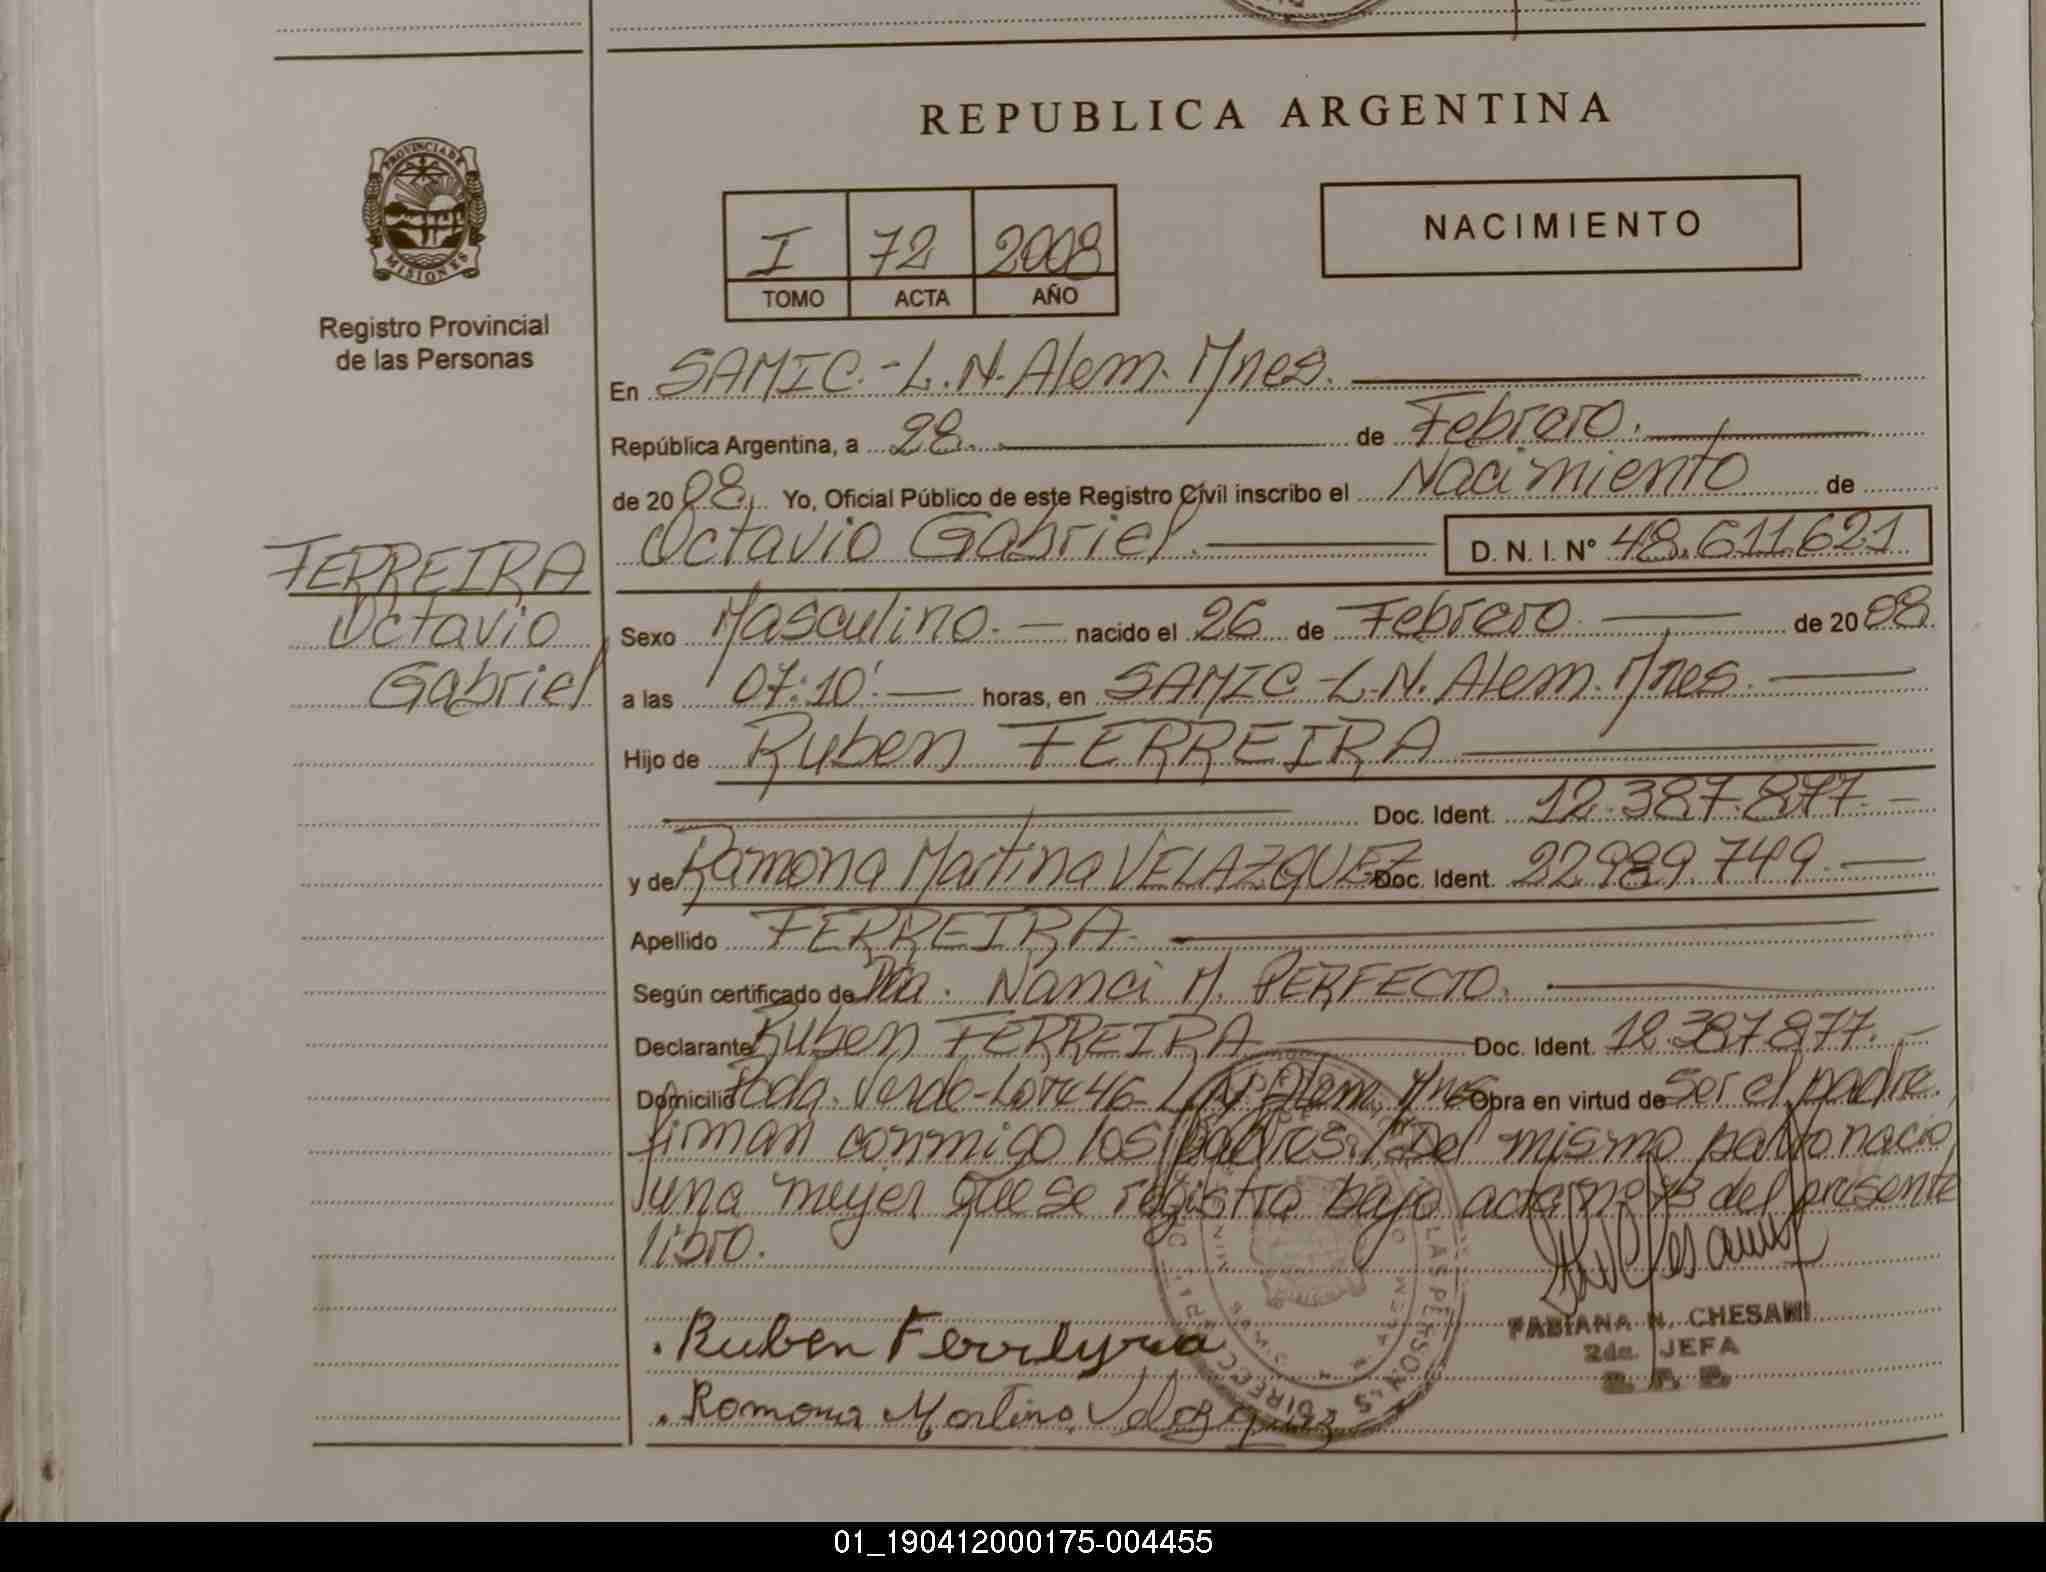 REPUBLICA ARGENTINA
PROVINCIA DE MISIONES
Registro Provincial
de las Personas
I 72 2008
TOMO ACTA AÑO
NACIMIENTO
En SAMIC.-L.N.Alem.Mnes.
República Argentina, a 28. de Febrero.
de 2008. Yo, Oficial Público de este Registro Civil inscribo el Nacimiento de
Octavio Gabriel. D. N. I. Nº 48.611.621
FERREIRA
Octavio
Gabriel
Sexo Masculino. nacido el 26 de Febrero de 2008
a las 07:10'. horas, en SAMIC-L.N. Alem. Mnes.
Hijo de Ruben FERREIRA
Doc. Ident. 12.387.877.-
y de Ramona Martina VELAZQUEZ Doc. Ident. 22.989.749.
Apellido FERREIRA.
Según certificado de Dra. Nanci M. PERFECTO.
Declarante Ruben FERREIRA Doc. Ident. 12.387.877.-
Domicilio Pcda. Verde-Lote 46-L.N. Alem. Mnes Obra en virtud de Ser el padre.
firman conmigo los padres. Del mismo parto nació
una mujer que se registra bajo acta nº 73 del presente
libro.
Ruben Ferreyra
Ramona Martina Velazquez
FABIANA N. CHESANI
2da. JEFA
01_190412000175-004455